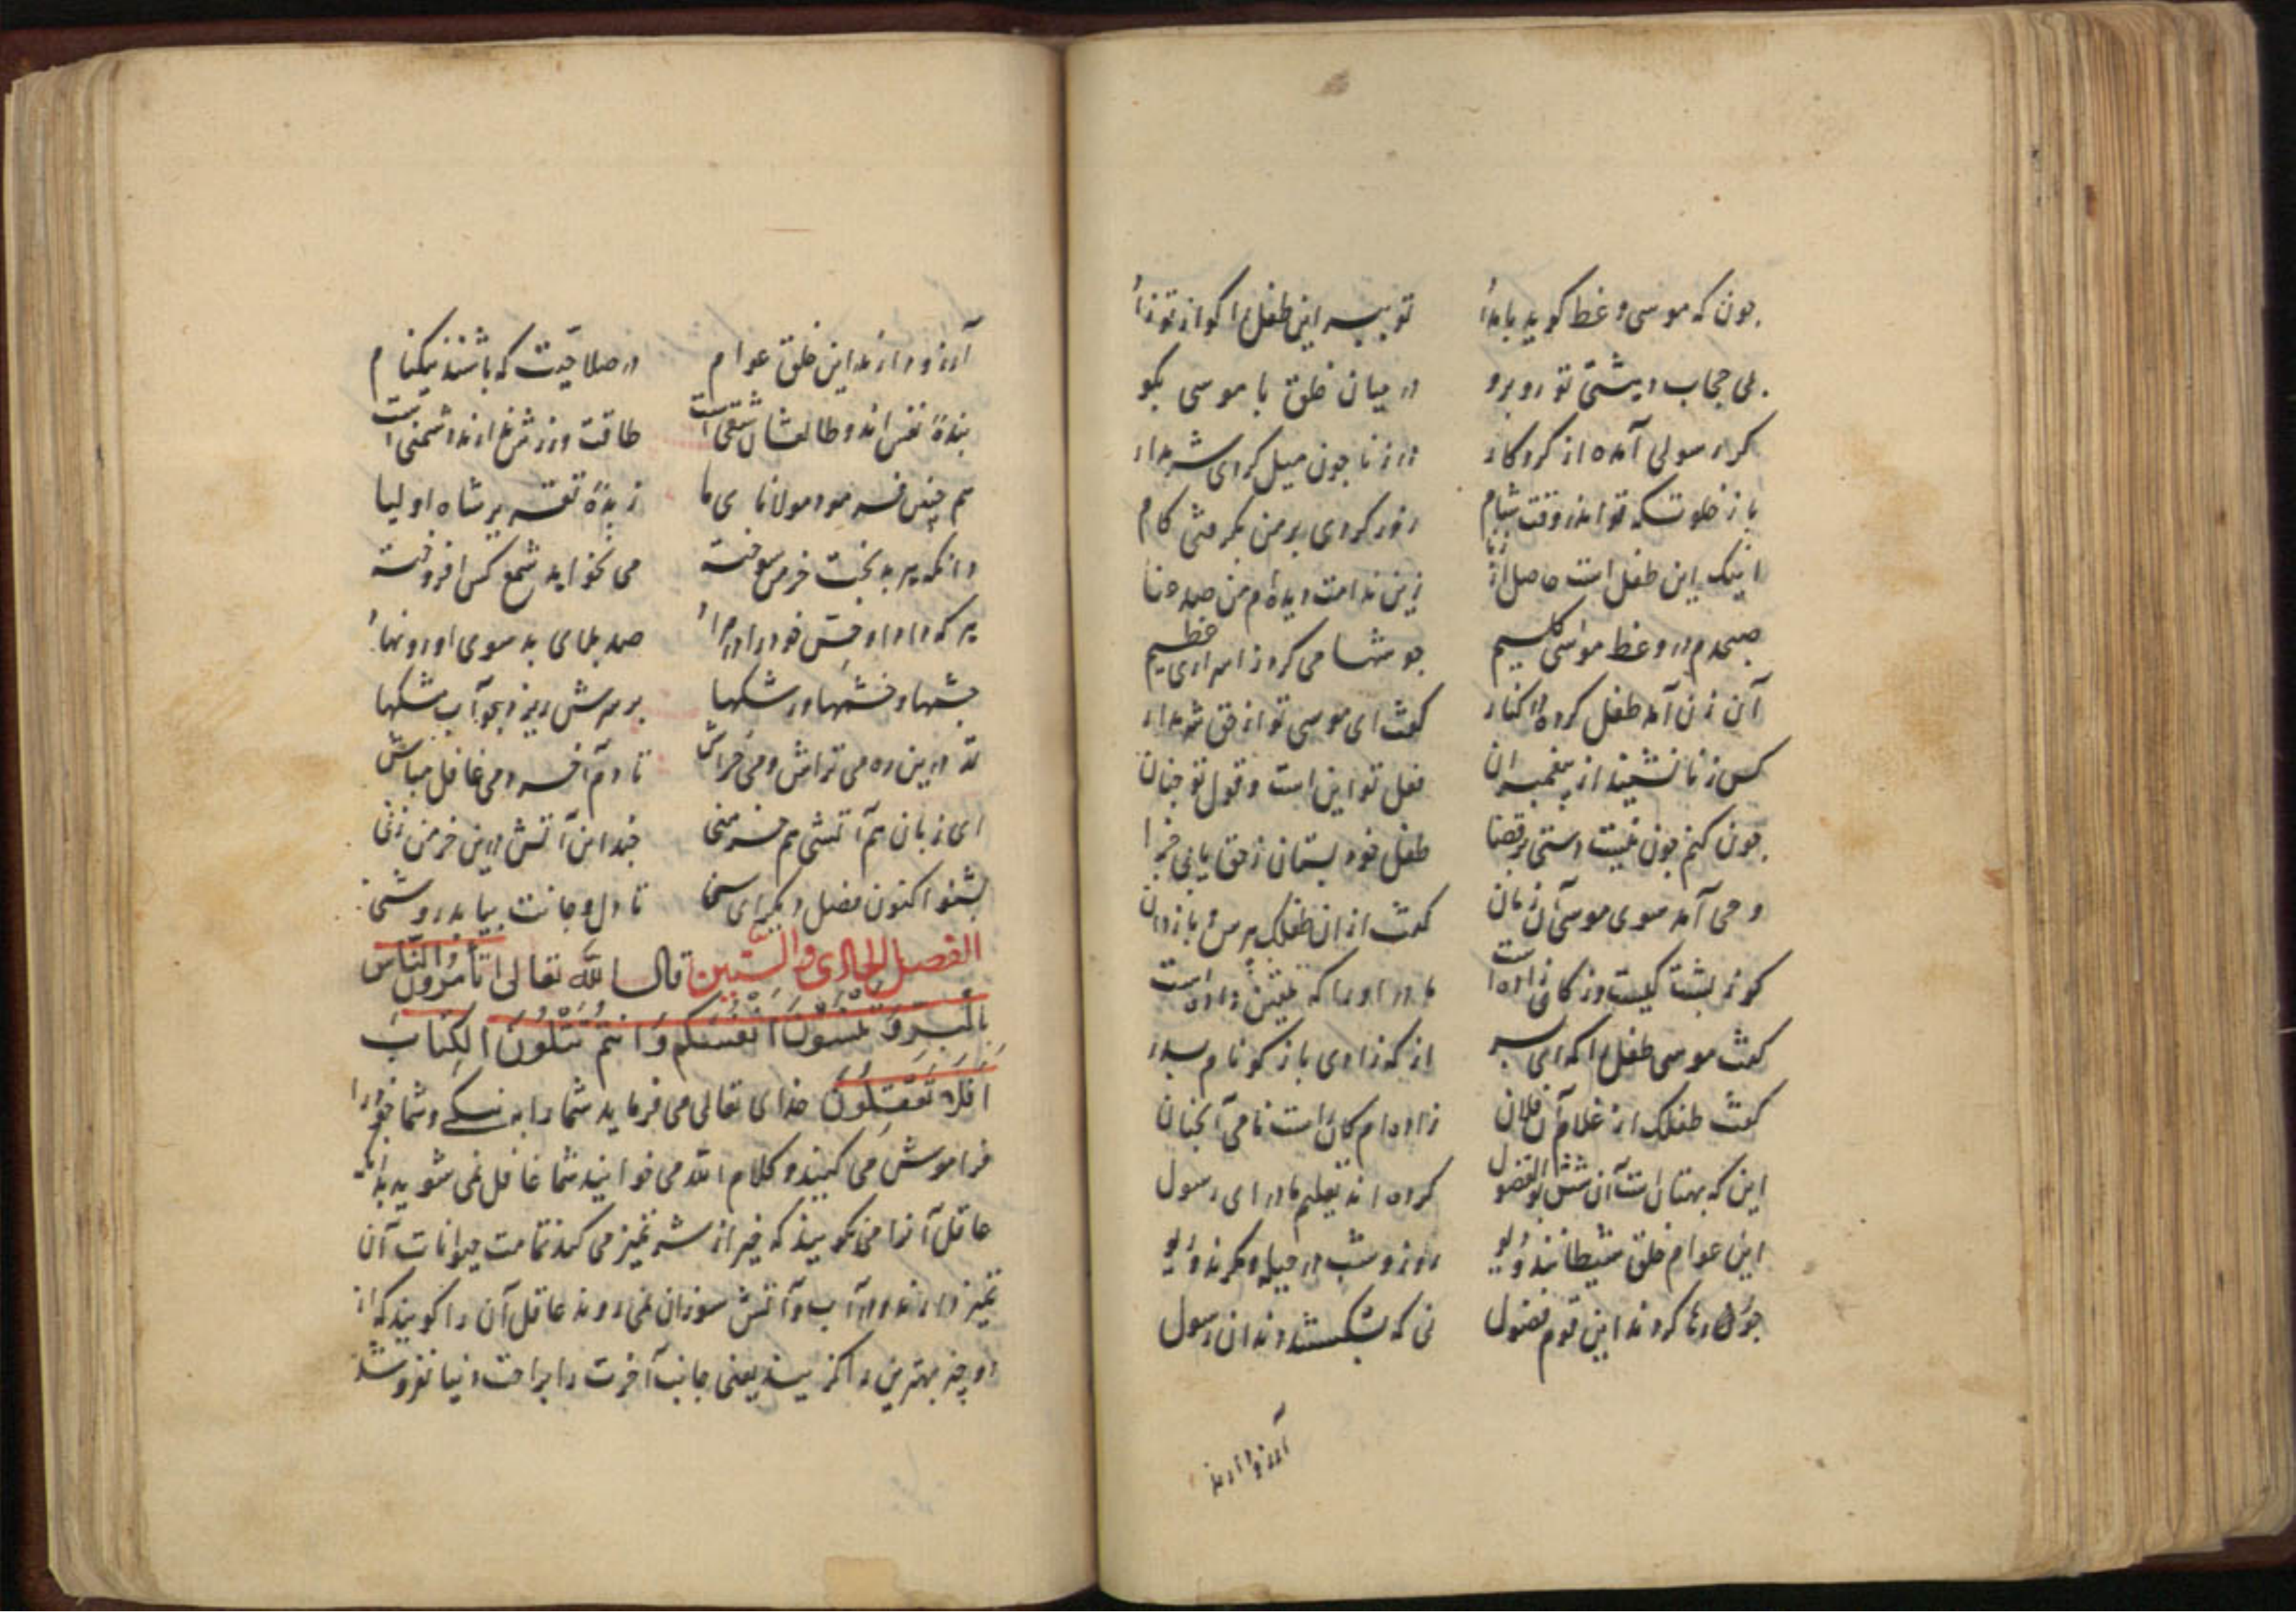 چون که موسی وعظ گوید با بدان توبپرس این طفل را کو از تو زاد
بی حجاب و پشتی تو روبرو در میان خلق با موسی بگو
کر رسولی آمده از کردکار در زنا چون میل کردی شرمدار
باز خلوتکه تو اندر وقت شام زور کردی بر من بگرفتی کام
اینک این طفل است حاصل از زنا زین ندامت دیده‌ام من صد عنا
صبحدم در وعظ موسی کلیم جوشها می کرد ز اسرار عظیم
آن زن آمد طفل کرده در کنار گفت ای موسی تو از حق شرم دار
کس زنا نشنید از پیغمبران فعل تو این است و قول تو چنان
چون کنم چون نیست دستی بر قضا طفل خود بستان ز حق یابی جزا
وحی آمد سوی موسی آن زمان گفت از ان طفلک بپرس و باز دان
کو ز پشت کیست وز کی زاده است مادر او را که تلقین داده است
گفت موسی طفل را که ای پسر از که زادی باز کو نام پدر
گفت طفلک از غلام آن فلان زاده‌ام کان است نامی آنچنان
این که بهتان است آن شش بوالفضول کرده اند تعلیم مادر ای رسول
این عوام خلق شیطانند و دیو روز و شب در حیله و مکرند و ریو
چون رها کردند این قوم فضول نی که بشکستند دندان رسول
آرزو دارند
آرزو دارند این خلق عوام در صلاحیت که باشند نیکنام
بندهٔ نفس اند و طالعشان شقی است طاقت ورزش ندارند دشمنی است
هم چنین فرمود مولانای ما زبدهٔ تفسیر شاه اولیا
وانکه پیر بدبخت خرمن سوخته می نخواهد شمع کس افروخته
هر که دارد او حسن خود را در مراد صد بلای بد سوی او رو نهاد
چشمها و خشمها و رشکها بر سرش ریزد چو آب مشکها
اندرین ره می تراش و می خراش تا دم آخر دمی غافل مباش
ای زبان هم آتشی هم خرمنی چند این آتش درین خرمن زنی
بشنو اکنون فصل دیگر ای سنی تا دل و جانت بیابد روشنی
الفصل الحادی والستین قال الله تعالی اتأمرون الناس
بالبر وتنسون انفسکم وانتم تتلون الکتاب
افلا تعقلون خدای تعالی می فرماید شما را به نیکی و شما خود را
فراموش می کنید و کلام الله می خوانید شما غافل نمی شوید بدان
عاقل آن را می گویند که خیر از شر تمیز می کند تمامت حیوانات آن
تمیز دارند و در آب و آتش سوزان نمی روند عاقل آن را گویند که از
دو چیز بهترین را گزیند یعنی جانب آخرت را براحت دنیا نفروشد